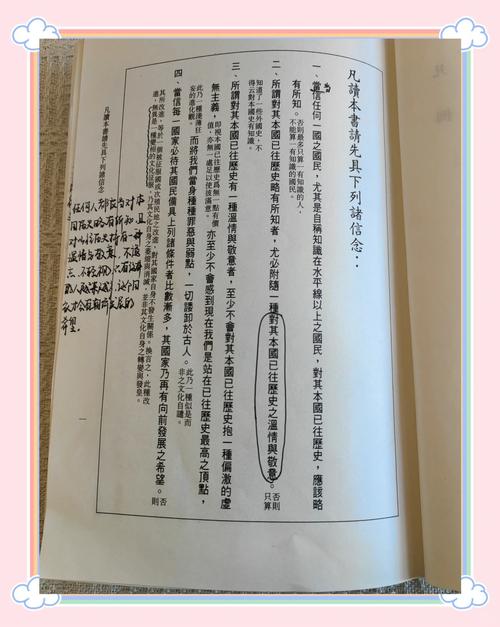 凡讀本書請先具下列諸信念：
一、當信任何一國之國民，尤其是自稱知識在水平線以上之國民，對其本國已往歷史，應該略
有所知。否則最多只算一有知識的人，不能算一有知識的國民。
二、所謂對其本國已往歷史略有所知者，尤必附隨一種對其本國已往歷史之溫情與敬意。否則只算
知道了一些外國史，不得云對本國史有知識。
三、所謂對其本國已往歷史有一種溫情與敬意者，至少不會對其本國已往歷史抱一種偏激的虛
無主義，即視本國已往歷史爲無一點有價值，亦無一處足以使彼滿意。亦至少不會感到現在我們是站在已往歷史最高之頂點，
此乃一種淺薄狂妄的進化觀。而將我們當身種種罪惡與弱點，一切諉卸於古人。此乃一種似是而非之文化自譴。
四、當信每一國家必待其國民備具上列諸條件者比數漸多，其國家乃再有向前發展之希望。否則
其所改進，等於一個被征服國或次殖民地之改進，對其國家自身不發生關係。換言之，此種改
進，無異是一種變相的文化征服，乃其文化自身之萎縮與消滅，並非其文化自身之轉變與發皇。
凡讀本書請先具下列諸信念
一
當
任何人
希望。